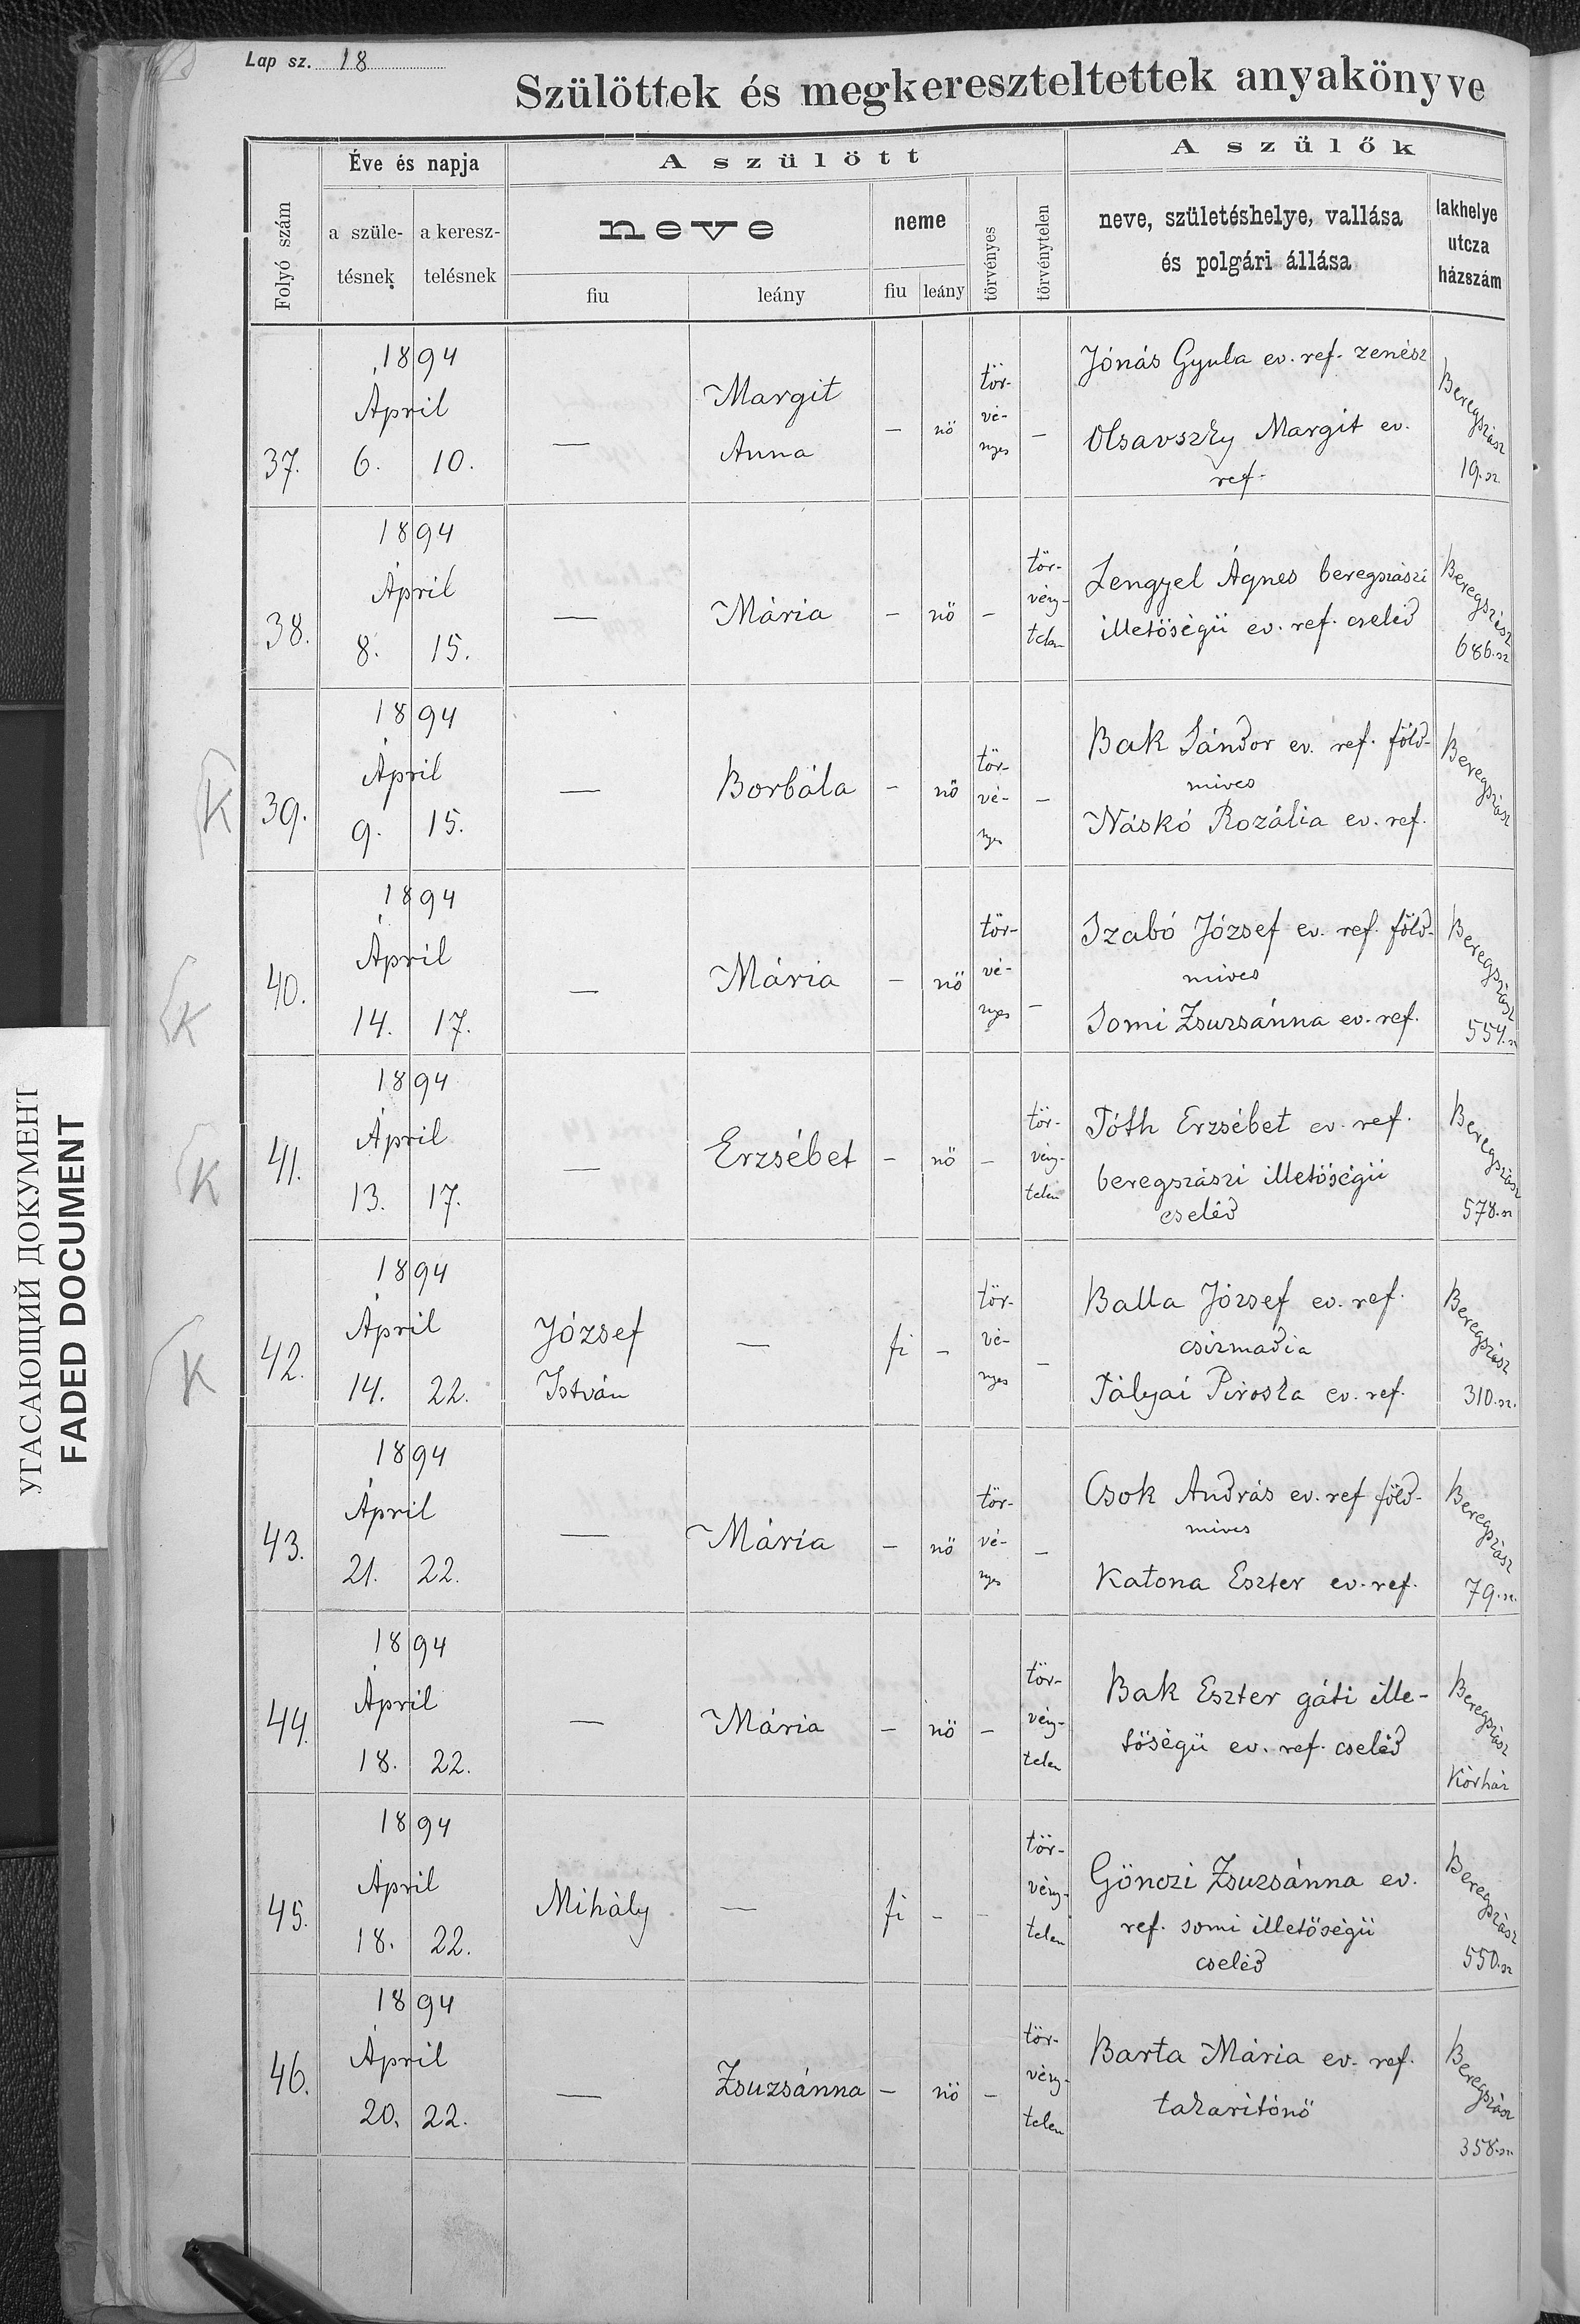 Lap sz. 18
Szülöttek és megkereszteltettek anyakönyve
Folyó szám
Éve és napja
a szüle-
tésnek
a keresz-
telésnek
A szülött
neve
fiu
leány
neme
fiu
leány
törvényes
törvénytelen
A szülők
neve, születéshelye, vallása
és polgári állása
lakhelye
utcza
házszám
37.
1894
Április
6.
10.
—
Margit
Anna
—
nö
tör-
vé-
nyes
—
Jónás Gyula ev. ref. zenész
Olsavszky Margit ev.
ref.
Beregszász
19. sz.
38.
1894
April
8.
15.
—
Mária
—
nö
—
tör-
vény-
telen
Lengyel Ágnes beregszászi
illetöségü ev. ref. cseléd
Beregszász
686. sz
K
39.
1894
April
9.
15.
—
Borbála
—
nö
tör-
vé-
nyes
—
Bak Sándor ev. ref. föld-
mives
Náskó Rozália ev. ref.
Beregszász
K
40.
1894
April
14.
17.
—
Mária
—
nö
tör-
vé-
nyes
—
Szabó József ev. ref. föld-
mives
Somi Zsuzsánna ev. ref.
Beregszász
554. sz
K
41.
1894
April
13.
17.
—
Erzsébet
—
nö
—
tör-
vény-
telen
Tóth Erzsébet ev. ref.
beregszászi illetöségü
cseléd
Beregszász
578. sz
K
42.
1894
April
14.
22.
József
István
—
fi
—
tör-
vé-
nyes
—
Balla József ev. ref.
csizmadia
Tályai Piroska ev. ref.
Beregszász
310. sz.
43.
1894
April
21.
22.
—
Mária
—
nö
tör-
vé-
nyes
—
Csok András ev. ref föld-
mives
Katona Eszter ev. ref.
Beregszász
79. sz.
44.
1894
April
18.
22.
—
Mária
—
nö
—
tör-
vény-
telen
Bak Eszter gáti ille-
töségü ev. ref. cseléd
Beregszász
Kórház
45.
1894
April
18.
22.
Mihály
—
fi
—
—
tör-
vény-
telen
Gönczi Zsuzsánna ev.
ref. somi illetöségü
cseléd
Beregszász
550. sz
46.
1894
April
20.
22.
—
Zsuzsánna
—
nö
—
tör-
vény-
telen
Barta Mária ev. ref.
takaritónö
Beregszász
358. sz.
УГАСАЮЩИЙ ДОКУМЕНТ
FADED DOCUMENT